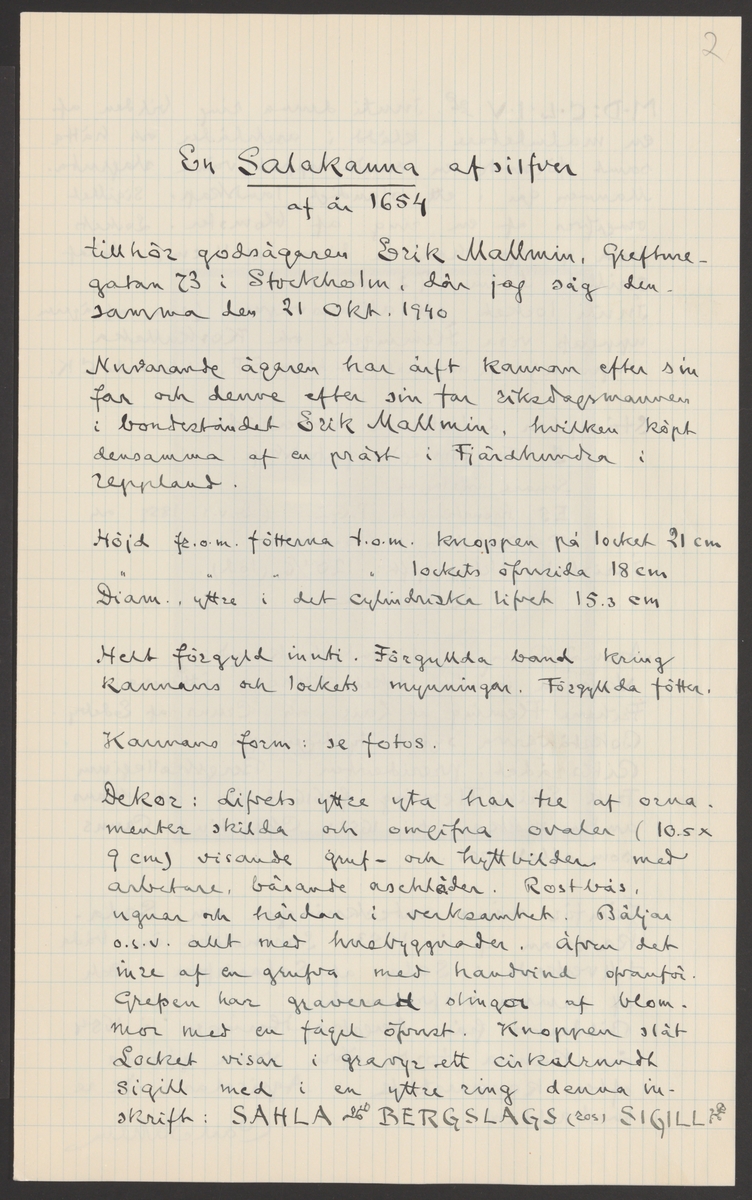 2
En Salakanna af silfver
af år 1654
tillhör godsägaren Erik Mallmin, Grefture-
gatan 73 i Stockholm, där jag såg den-
samma den 21 Okt. 1940
Nuvarande ägaren har ärft kannan efter sin
far och denne efter sin far riksdagsmannen
i bondeståndet Erik Mallmin, hvilken köpt
densamma af en präst i Fjärdhundra i
Uppland.
Höjd fr.o.m. fötterna t.o.m. knoppen på locket 21 cm
" " " " lockets öfversida 18 cm
Diam., yttre i det cylindriska lifvet 15.3 cm
Helt förgyld inuti. Förgyllda band kring
kannans och lockets mynningar. Förgyllda fötter.
Kannans form: se fotos.
Dekor: Lifvets yttre yta har tre af orna-
menter skilda och omgifna ovaler (10.5 x
9 cm) visande gruf- och hyttbilder med
arbetare, bärande askhläder. Rostbås,
ugnar och härdar i verksamhet. Bäljar
o.s.v. allt med husbyggnader. Äfven det
inre af en grufva med handvind ofvanför.
Grepen har graverad slingor af blom-
mor med en fågel öfverst. Knoppen slät
Locket visar i gravyr ett cirkelrundt
sigill med i en yttre ring denna in-
skrift: SAHLA BERGSLAGS (ros) SIGILL